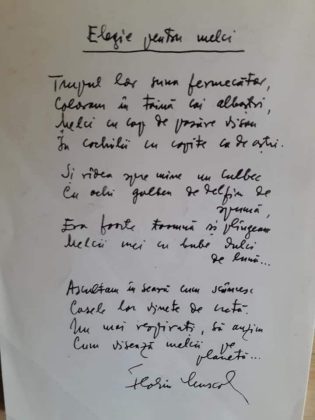 Elegie pentru melci
Trupul lor suna fermecător,
Coloram în taină cai albaștri,
Melci cu cap de pasăre visau
În cochilii cu copite ca de aștri.
Și râdea spre mine un culbec
Cu ochi galben de delfin de
spumă,
Era foarte toamnă și plângeau
Melcii mei cu bube dulci
de lună...
Ascultam în seară cum scâncesc
Casele lor vinete de cretă.
Nu mai respirați, să auzim
Cum visează melcii pe
planetă...
Florin